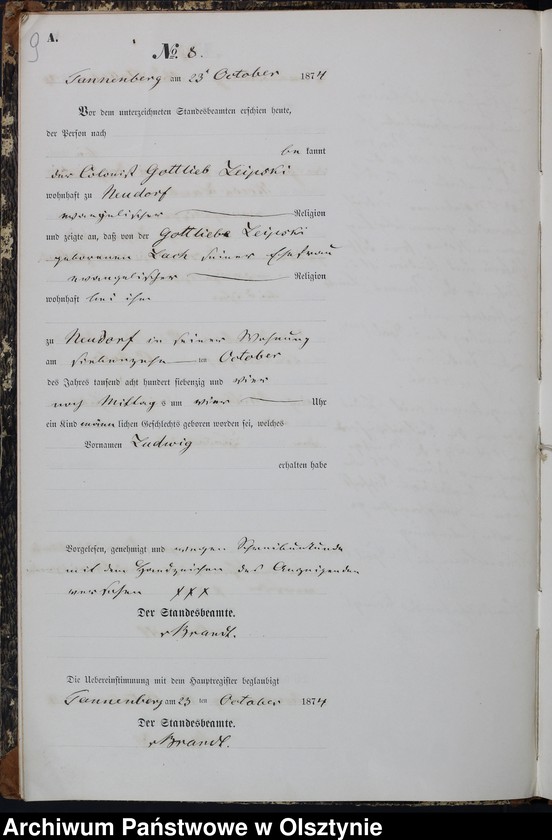 9
A.
№ 8.
Tannenberg am 23t October 1874
Vor dem unterzeichneten Standesbeamten erschien heute,
der Person nach
be kannt
der Colonist Gottlieb Leipski
wohnhaft zu Neudorf
evangelischer Religion
und zeigte an, daß von der Gottliebe Leipski
geborenen Lach seiner Ehefrau
evangelischer Religion
wohnhaft bei ihm
zu Neudorf in seiner Wohnung
am siebenzehn ten October
des Jahres tausend acht hundert siebenzig und vier
nach Mittag s um vier Uhr
ein Kind männ lichen Geschlechts geboren worden sei, welches
Vornamen Ludwig
erhalten habe
Vorgelesen, genehmigt und wegen Schreibunkunde
mit dem Handzeichen des Anzeigenden
versehen XXX
Der Standesbeamte.
vBrandt.
Die Uebereinstimmung mit dem Hauptregister beglaubigt
Tannenberg am 23 ten October 1874
Der Standesbeamte.
vBrandt.
Archiwum Państwowe w Olsztynie